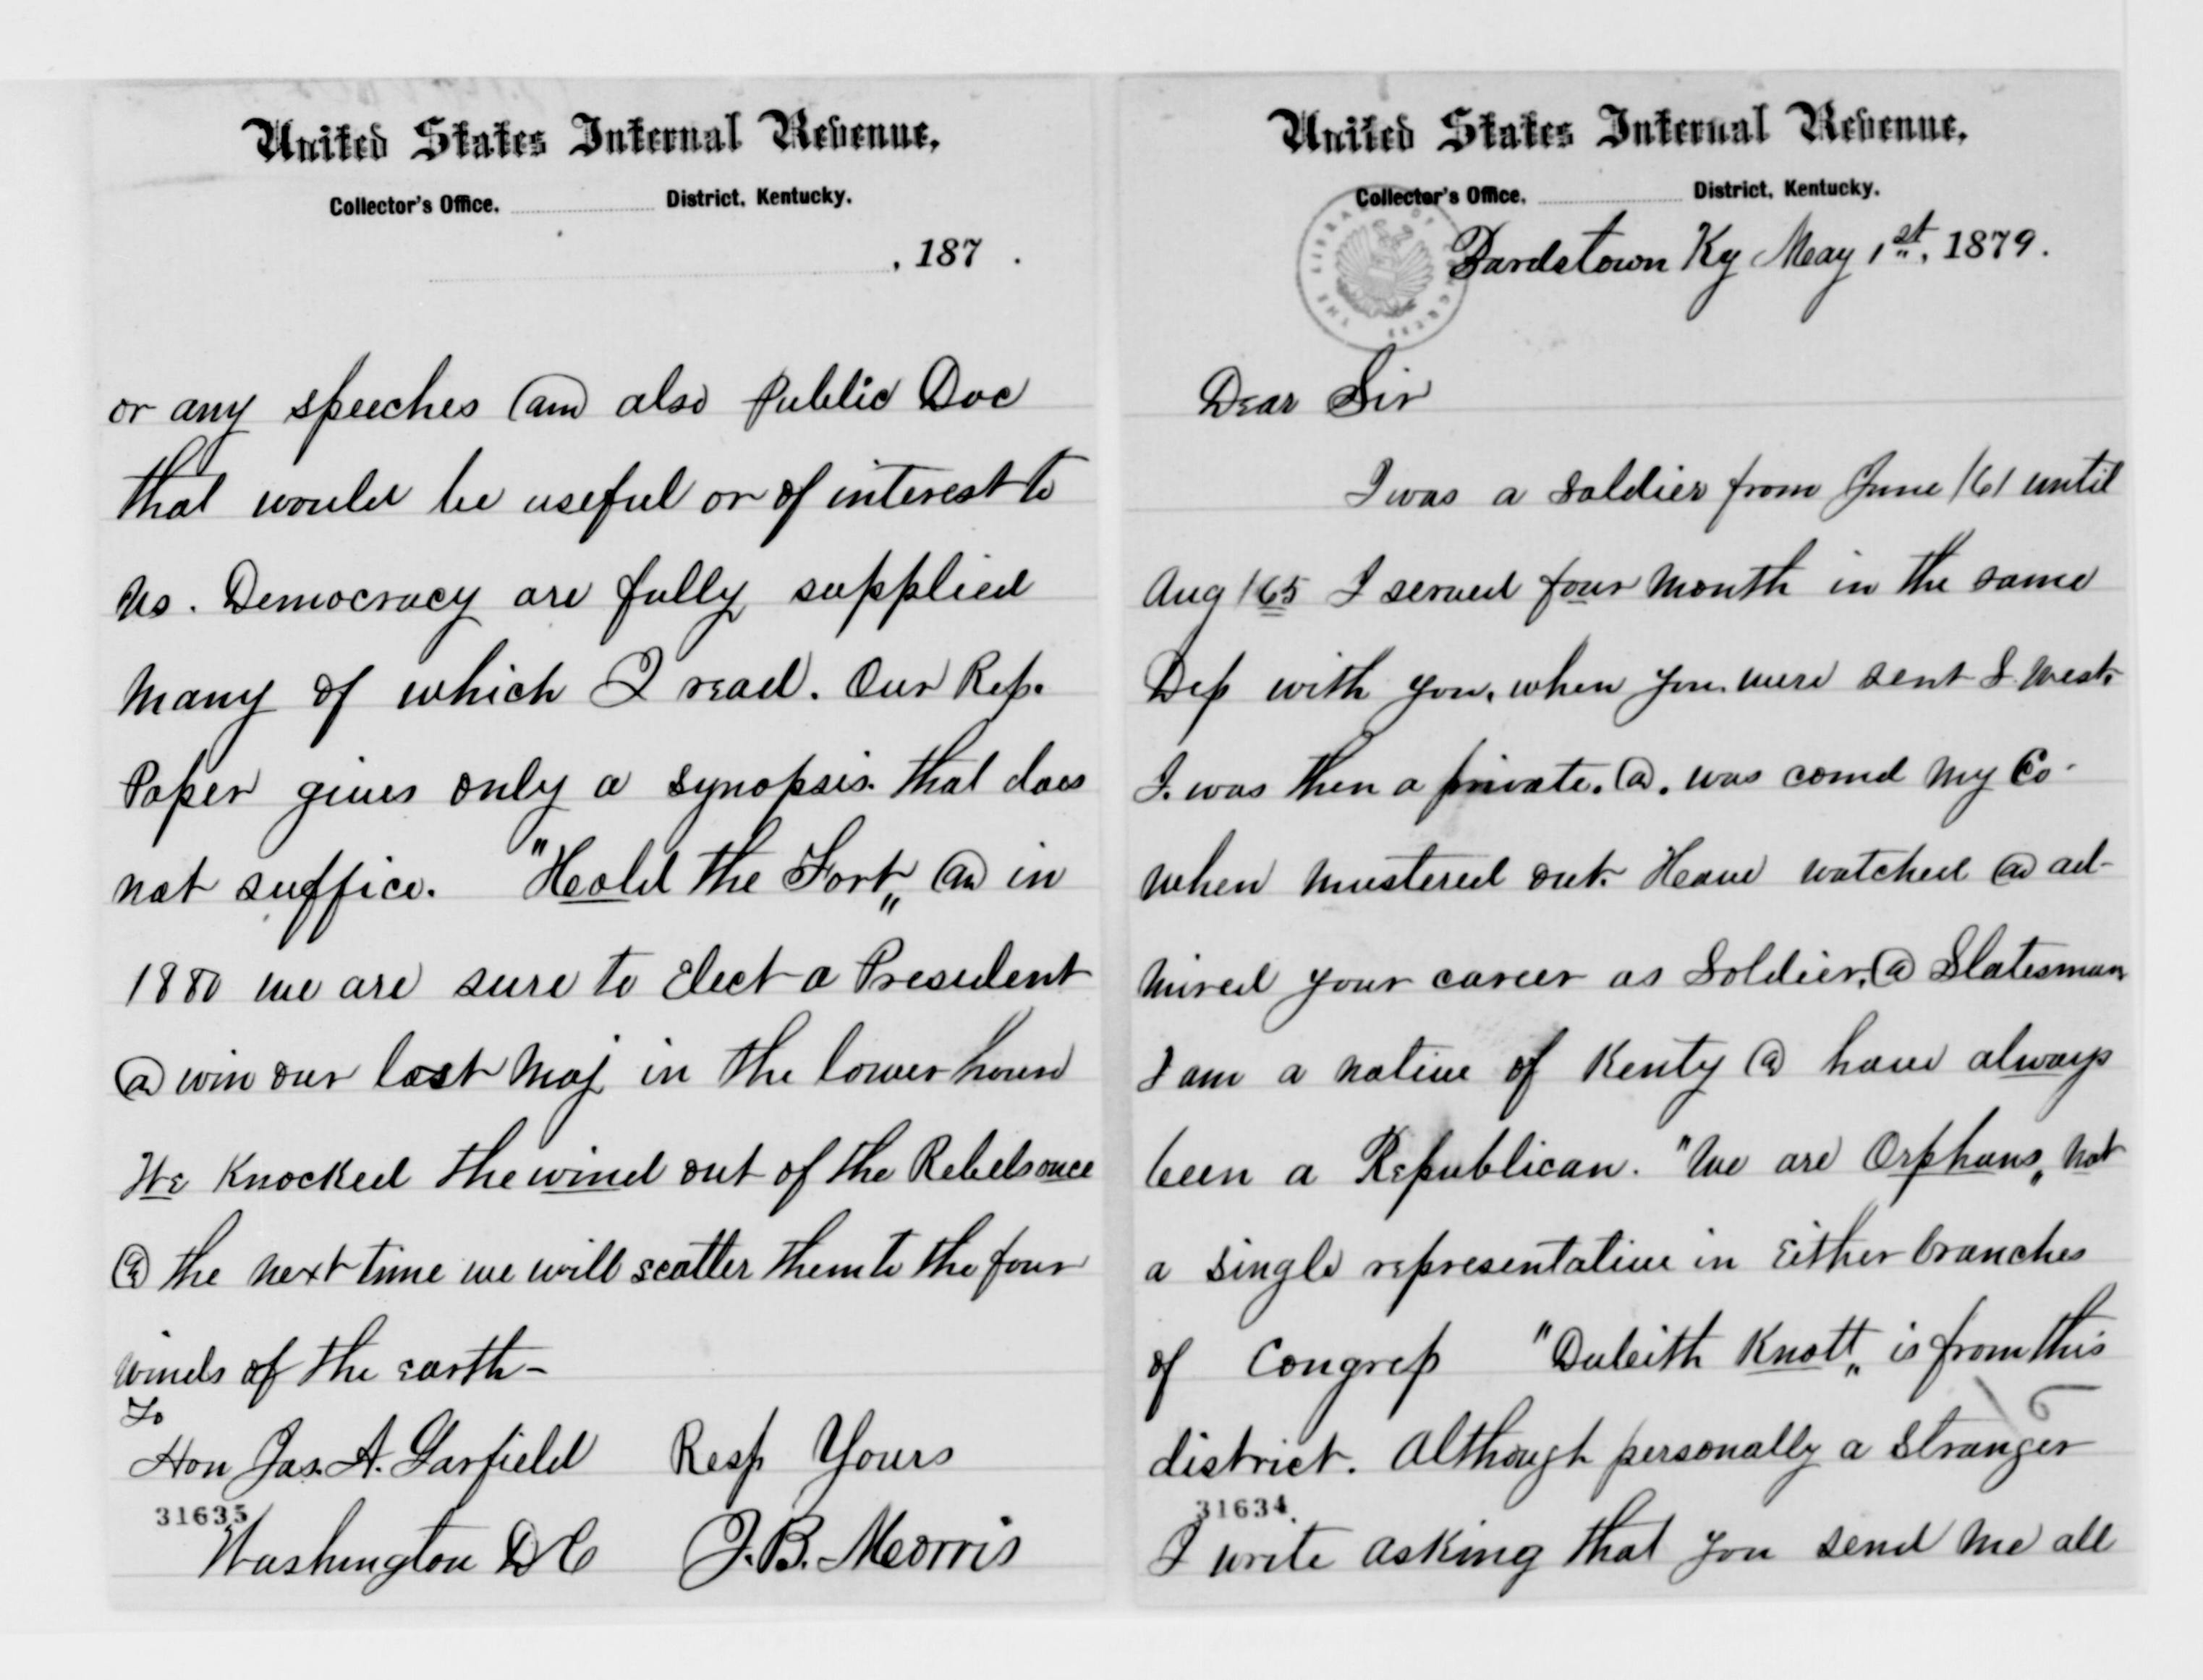 United States Internal Revenue,
Collector's Office, District, Kentucky.
Bardstown Ky May 1st, 1879.
Dear Sir
I was a Soldier from June /61 until
Aug /65 I served four Month in the same
Dep with you, when you were sent S. West.
I was then a private. @. was comd My Co.
When Mustered out. Heave watched @ ad-
mired your career as Soldier, @ Statesman
I am a native of Kenty @ have always
been a Republican. "We are Orphans„ Not
a single representative in Either branches
of Congress "Duluth Knott„ is from this
district. Although personally a Stranger
31634.
I write asking that you send Me all
United States Internal Revenue,
Collector's Office, District, Kentucky.
, 187 .
or any speeches (am) also Public Doc
that would be useful or of interest to
us. Democracy are fully supplied
Many of which I read. Our Rep.
Paper gives only a synopsis. that does
not suffice. "Heold the Fort„ @ in
1880 we are sure to Elect a President
@ win our lost Maj in the lower house
We Knocked the wind out of the Rebels once
@ the next time we will scatter them to the four
winds of the earth-
To
Hon Jas. A. Garfield Resp Yours
31635
Washington DC J. B. Meorris